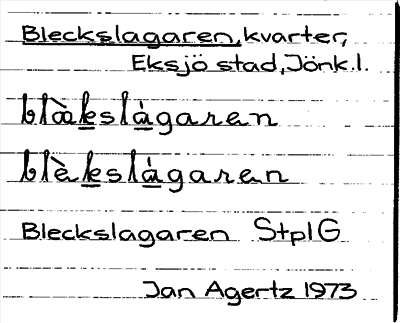 Bleckslagaren, kvarter,
Eksjö stad, Jönk.l.
blàkslágaren
blèkslágaren
Bleckslagaren StplG
Jan Agertz 1973